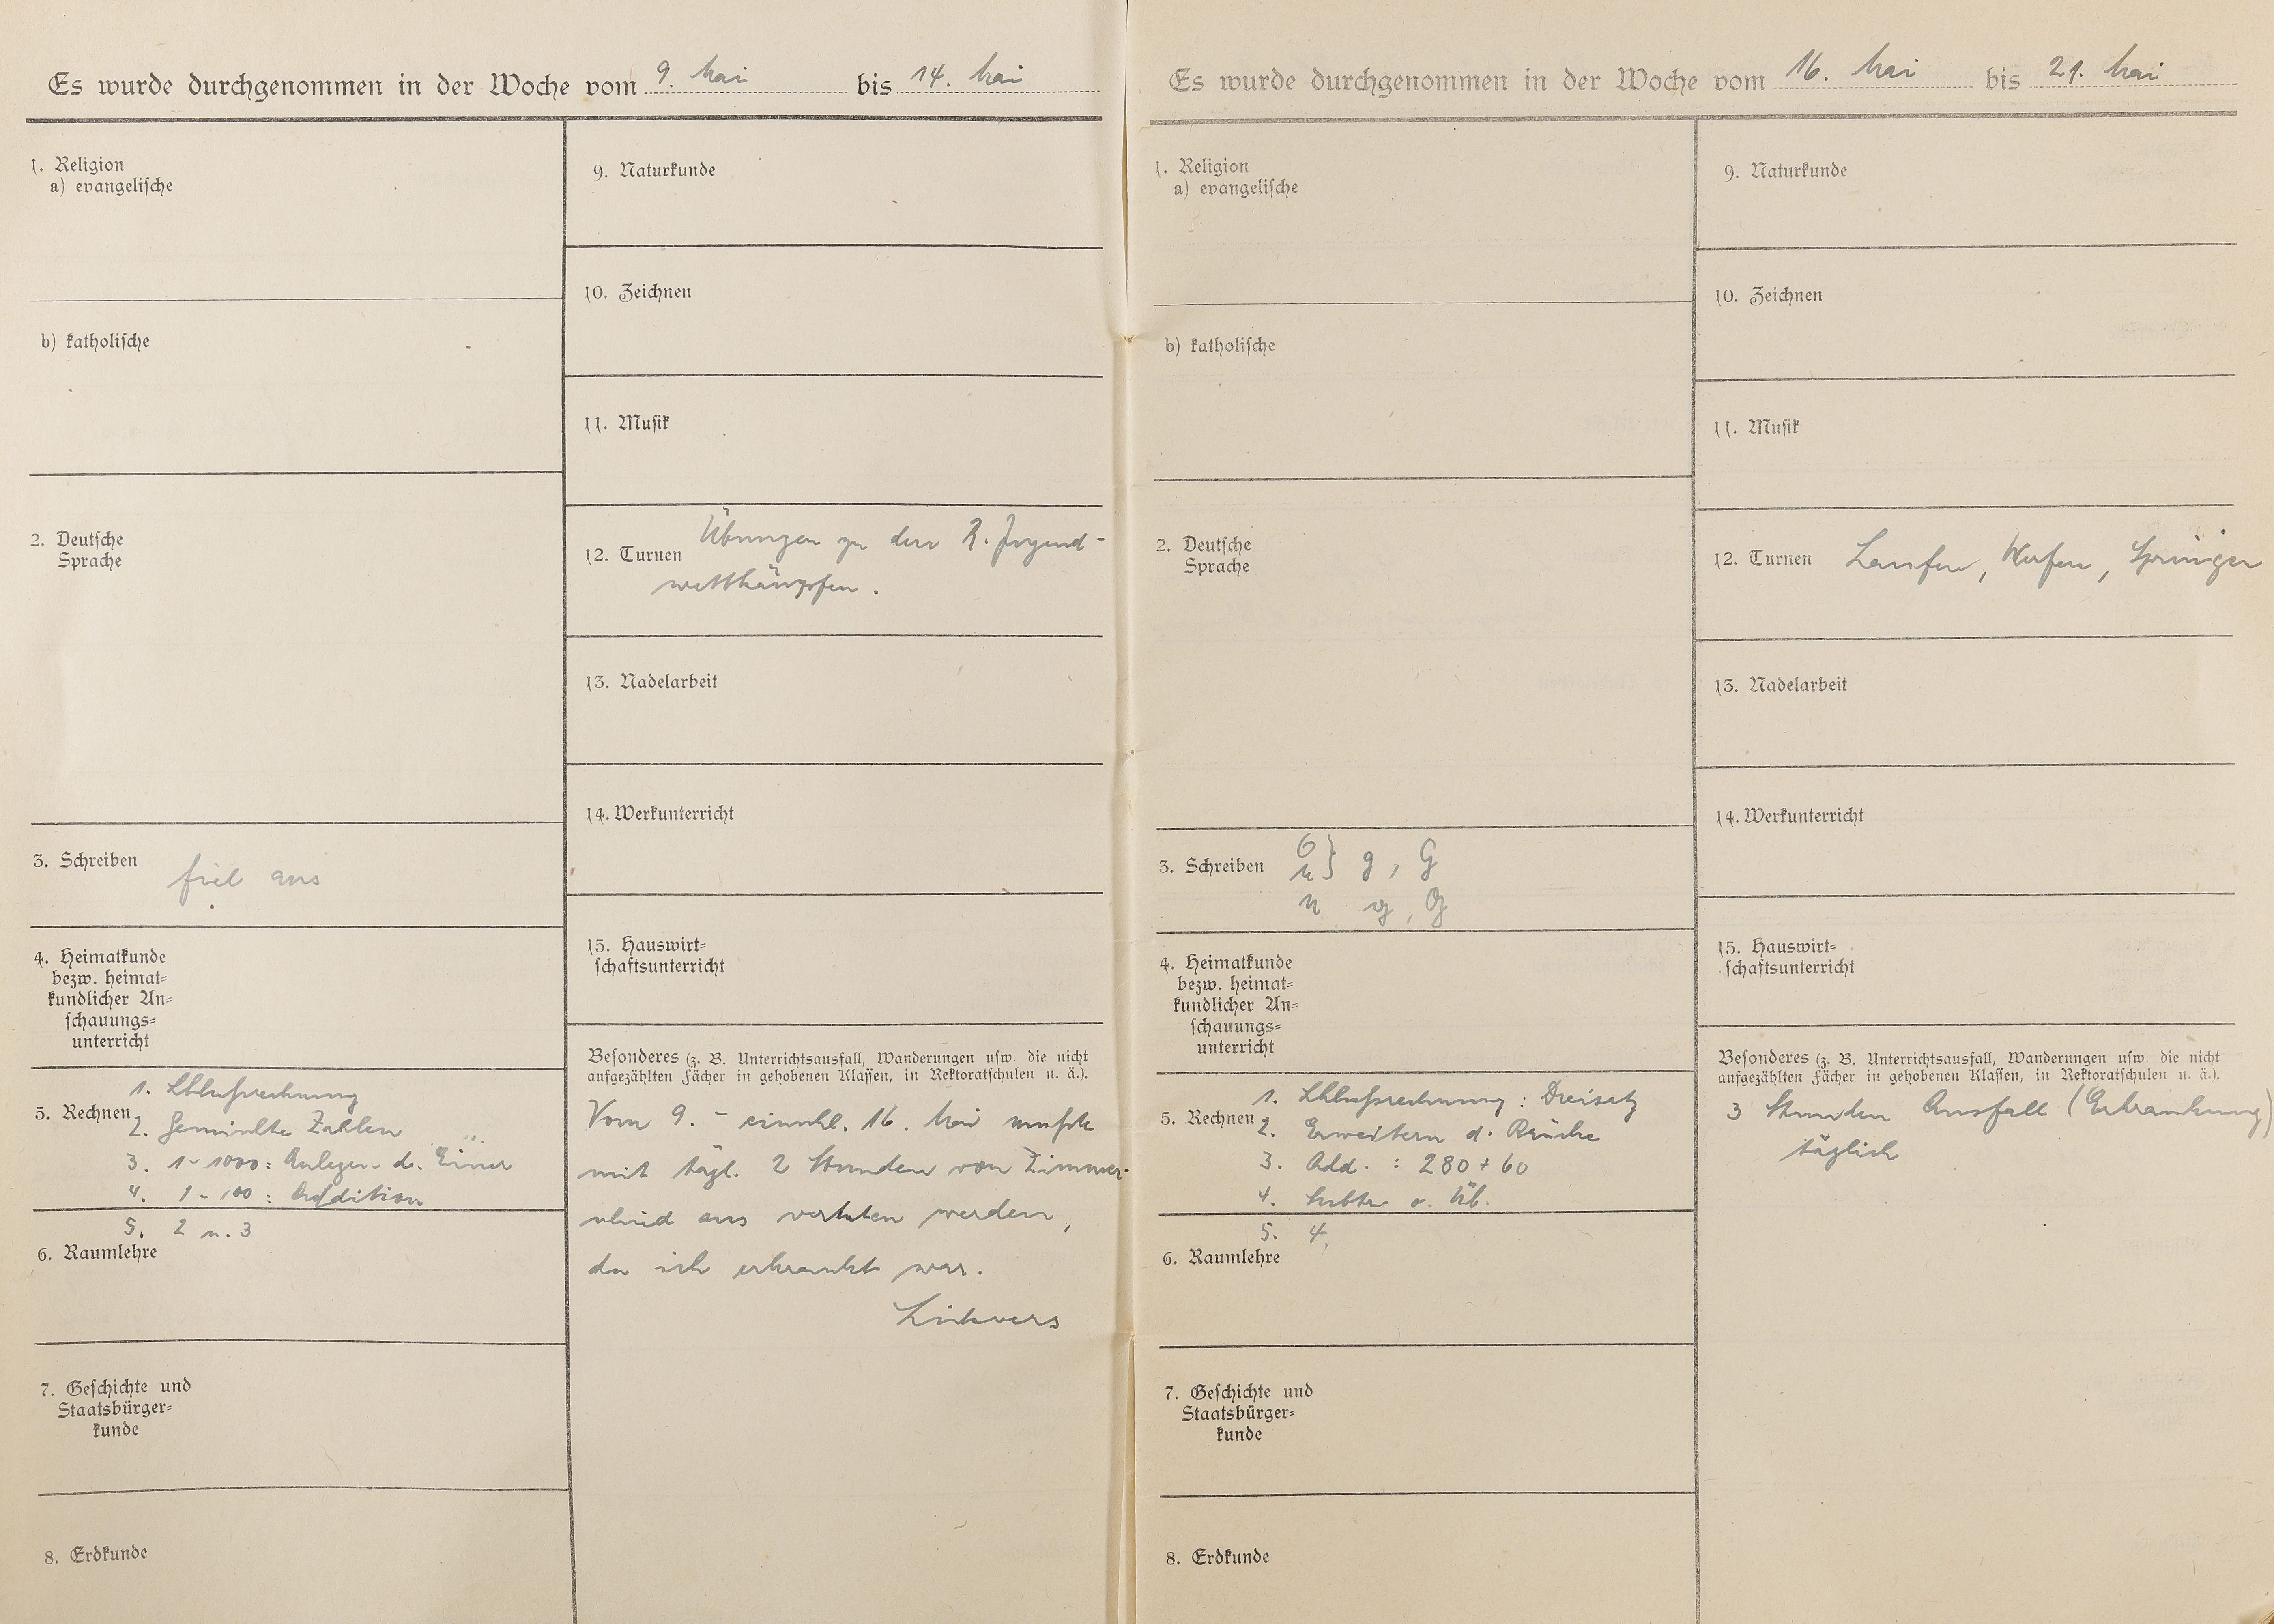 Es wurde durchgenommen in der Woche vom 9. Mai bis 14. Mai
1. Religion
a) evangelische
b) katholische
2. Deutsche
Sprache
3. Schreiben fiel aus
4. Heimatkunde
bezw. heimat=
kundlicher An=
schauungs=
unterricht
1. Schlußrechnung
5. Rechnen 2. Gemischte Zahlen
3. 1-1000: d. Einer
4. 1-100: Addition
5. 2 u. 3
6. Raumlehre
7. Geschichte und
Staatsbürger=
kunde
8. Erdkunde
9. Naturkunde
10. Zeichnen
11. Musik
12. Turnen Übungen zu den R. Jugend-
wettkämpfen.
13. Nadelarbeit
14. Werkunterricht
15. Hauswirt=
schaftsunterricht
Besonderes (z. B. Unterrichtsausfall, Wanderungen usw. die nicht
aufgezählten Fächer in gehobenen Klassen, in Rektoratschulen u. ä.).
Vom 9. - einschl. 16. Mai mußte
mit tägl. 2 Stunden von Zimmer-
aus vertreten werden,
da ich erkrankt war.
Es wurde durchgenommen in der Woche vom 16. Mai bis 21. Mai
1. Religion
a) evangelische
b) katholische
2. Deutsche
Sprache
3. Schreiben g, G
g, G
4. Heimatkunde
bezw. heimat=
kundlicher An=
schauungs=
unterricht
1. Schlußrechnung: Dreisatz
5. Rechnen 2. Erweitern d. Brüche
3. Add. : 280 + 60
4. Subtr. o. Üb.
5. 4.
6. Raumlehre
7. Geschichte und
Staatsbürger=
kunde
8. Erdkunde
9. Naturkunde
10. Zeichnen
11. Musik
12. Turnen Laufen, Werfen, Springen
13. Nadelarbeit
14. Werkunterricht
15. Hauswirt=
schaftsunterricht
Besonderes (z. B. Unterrichtsausfall, Wanderungen usw. die nicht
aufgezählten Fächer in gehobenen Klassen, in Rektoratschulen u. ä.).
3 Stunden Ausfall (Erkrankung)
täglich